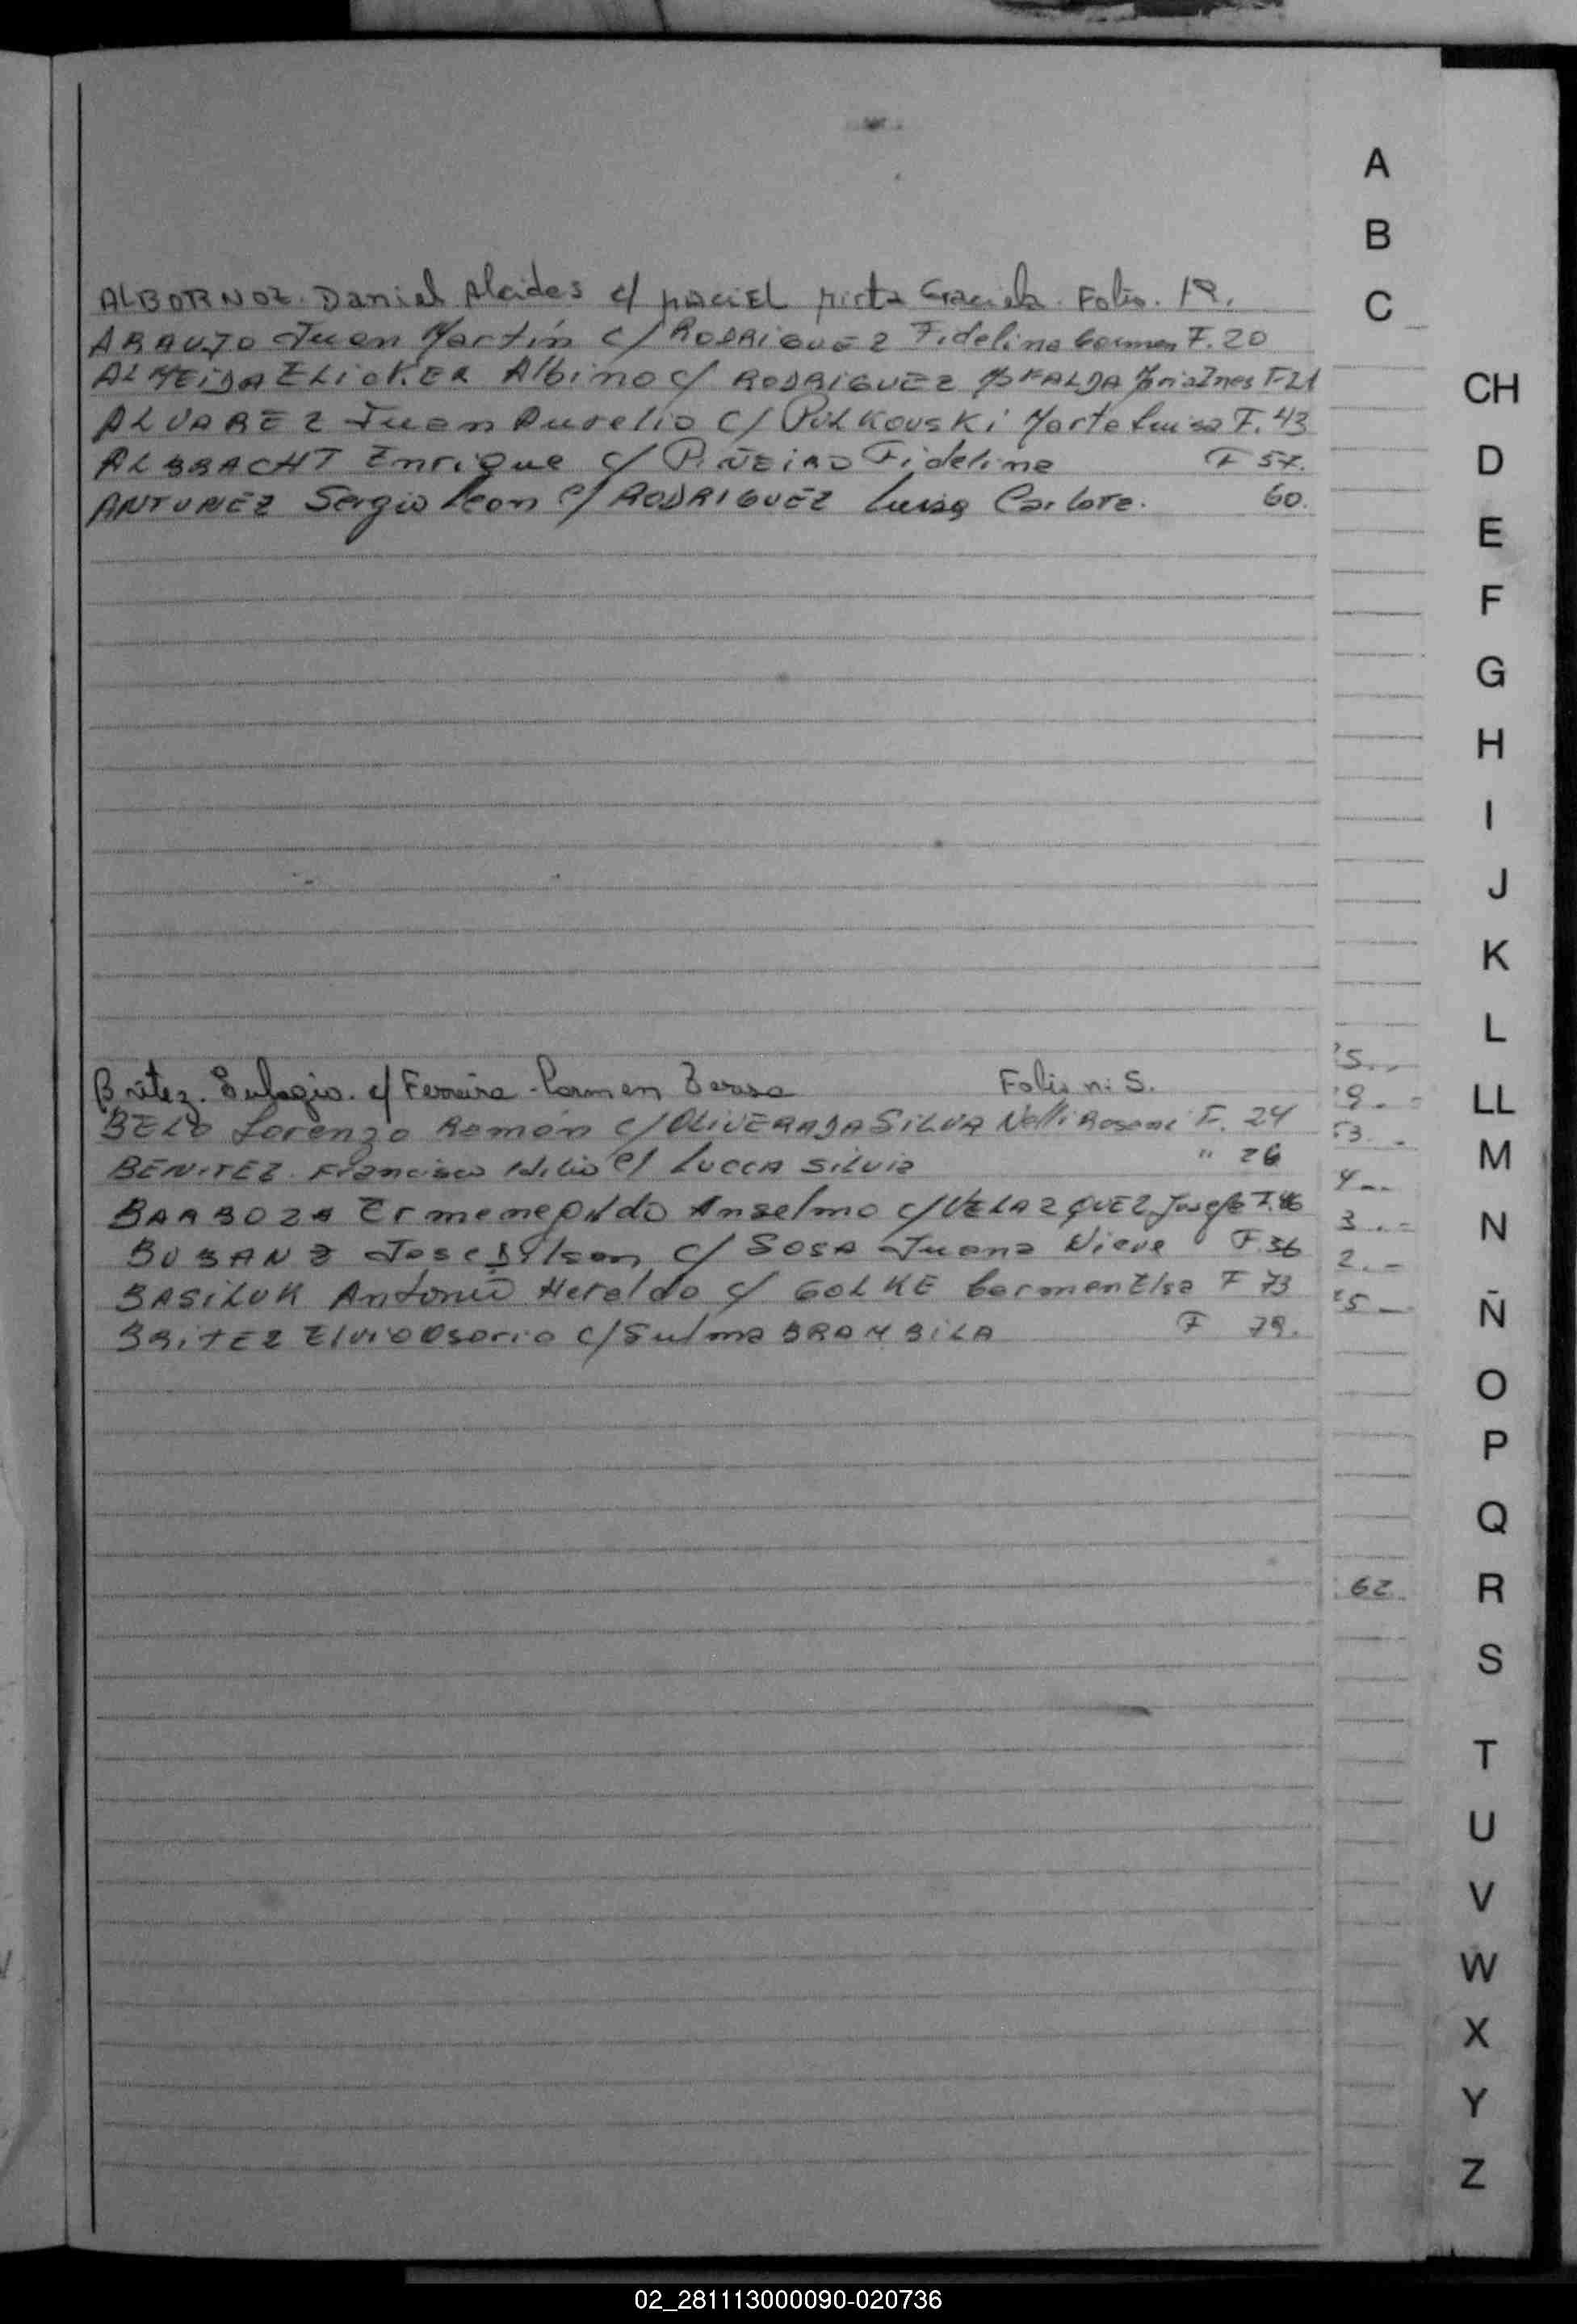 ALBORNOZ. Daniel Alcides c/ MACIEL Mirta Graciela. Folio. 19.
ARAUJO Juan Martín c/ RODRIGUEZ Fidelina Carmen F. 20
ALMEIDA ELICKER Albino c/ RODRIGUEZ MAFALDA María Ines F-21
ALVAREZ Juan Aurelio c/ Marta Luisa F. 43
ALBRACHT Enrique c/ PIÑEIRO Fidelina F 57.
ANTUNEZ Sergio Leon c/ RODRIGUEZ Luisa Carlota. 60.
Britez. Eulogio. c/ Ferreira Carmen Folio n: 5.
BELO Lorenzo Ramón c/ OLIVERA DA SILVA Nelli F. 24
BENITEZ. Francisco c/ LUCCA SILVIA " 26
BARBOZA Ermenegildo Anselmo c/ VELAZQUEZ Josefa F. 46
Jose c/ SOSA Juana Nieve F. 36
BASILUK Antonio Heraldo c/ GOLKE Carmen Elsa F 73
BRITEZ Elvio Osorio c/ Sulma BRAMBILA F 79.
62
A
B
C
CH
D
E
F
G
H
I
J
K
L
LL
M
N
Ñ
O
P
Q
R
S
T
U
V
W
X
Y
Z
02_281113000090-020736